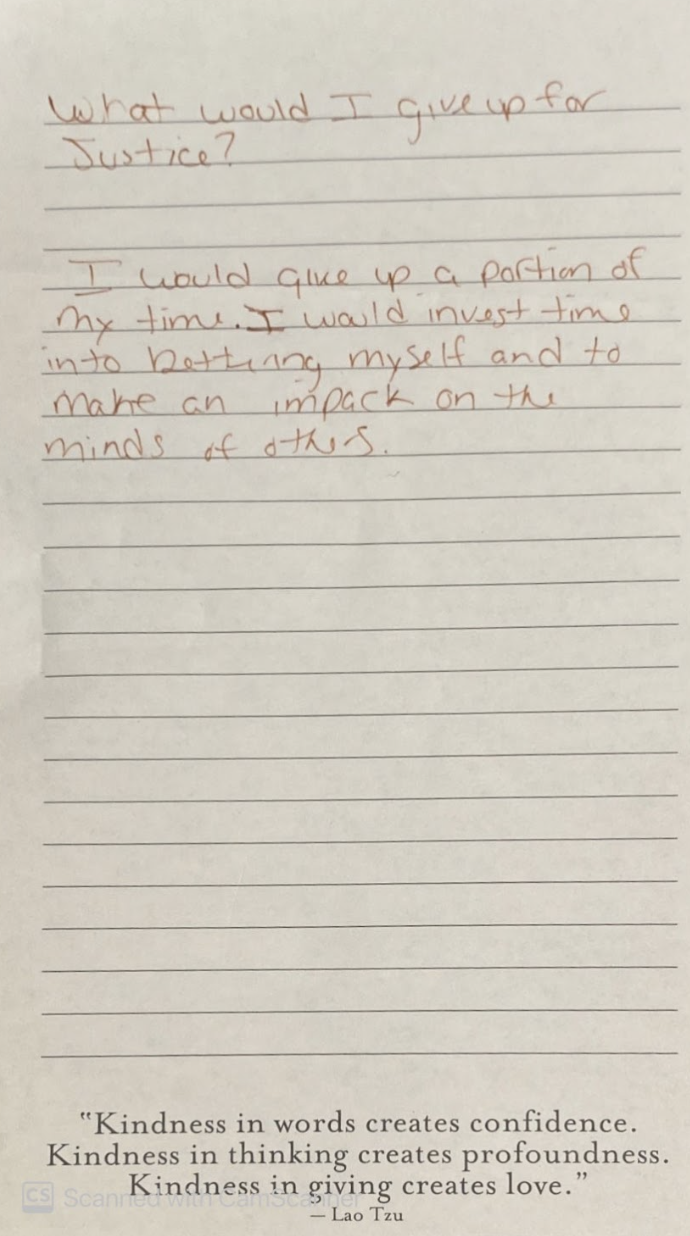 What would I give up for
Justice?
I would give up a portion of
my time. I would invest time
into bettering myself and to
make an impack on the
minds of others.
"Kindness in words creates confidence.
Kindness in thinking creates profoundness.
Kindness in giving creates love."
— Lao Tzu
CS Scanned with CamScanner